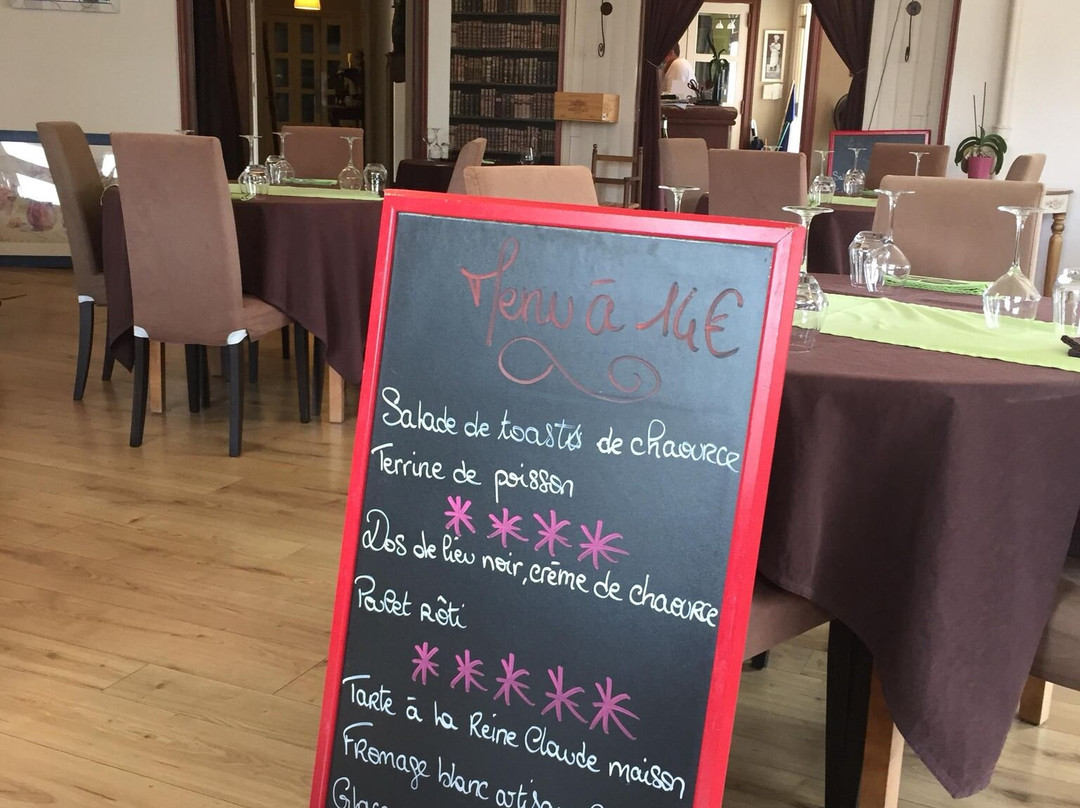 Menu à 14€
Salade de toasts de chaource
Terrine de poisson
Dos de lieu noir, crème de chaource
Poulet rôti
Tarte à la Reine Claude maison
Fromage blanc